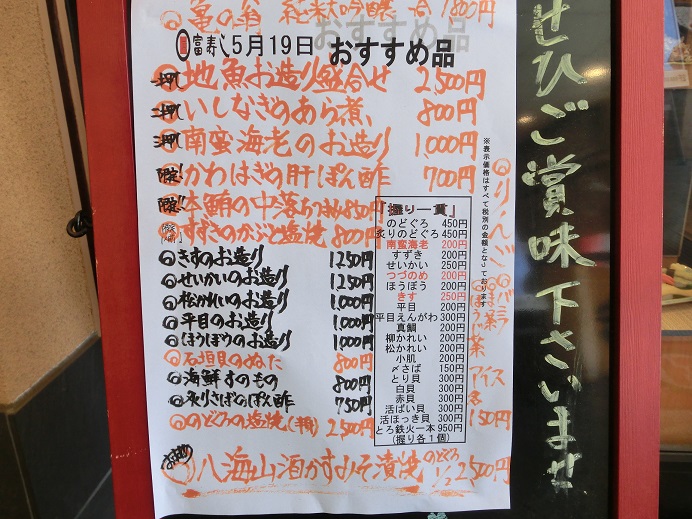 亀の翁 純米大吟醸 一合 1,800円
富寿し 5月19日 おすすめ品
一押! 地魚お造り盛合せ 2,500円
二押! いしなぎのあら煮 800円
三押! 南蛮海老のお造り 1,000円
限定! かわはぎの肝ぽん酢 700円
限定!! 本鮪の中落ち 850円
すずきのかぶと塩焼 800円
きすのお造り 1,250円
せいかいのお造り 1,250円
松かれいのお造り 1,000円
平目のお造り 1,000円
ほうぼうのお造り 1,000円
石垣貝のぬた 800円
海鮮すのもの 800円
炙りさばのぽん酢 750円
のどぐろの塩焼(半身) 2,500円
八海山酒かすみそ漬焼 のどぐろ 1/2 2,500円
「握り一貫」
のどぐろ 450円
炙りのどぐろ 450円
南蛮海老 200円
すずき 200円
せいかい 250円
つづのめ 200円
ほうぼう 200円
きす 250円
平目 200円
平目えんがわ 300円
真鯛 200円
柳かれい 200円
松かれい 200円
小肌 200円
〆さば 150円
とり貝 300円
白貝 300円
赤貝 300円
活ばい貝 300円
活ほっき貝 300円
とろ鉄火一本 950円
(握り各1個)
※表示価格はすべて税別の金額となっております
りんご
バニラ
ほうじ茶
アイス
各150円
ぜひご賞味下さいませ